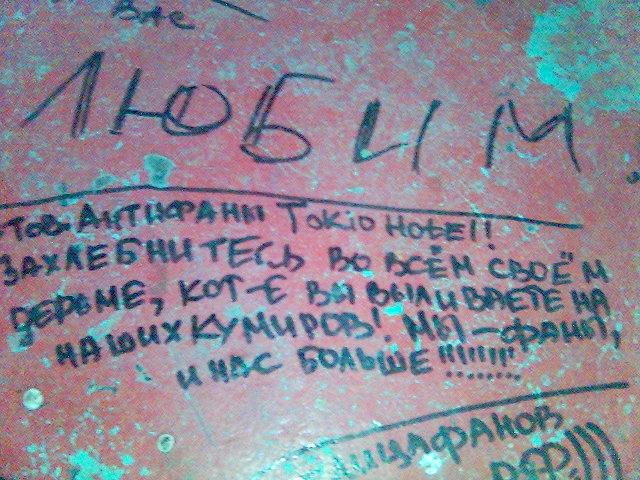 ВАС
ЛЮБИМ
АНТИФАНЫ TOKIO HOTEL!
ЗАХЛЕБНИТЕСЬ ВО ВСЁМ СВОЁМ
ДЕРЬМЕ, КОТ-Е ВЫ ВЫЛИВАЕТЕ НА
НАШИХ КУМИРОВ! МЫ-ФАНЫ,
И НАС БОЛЬШЕ!!!!!!!!